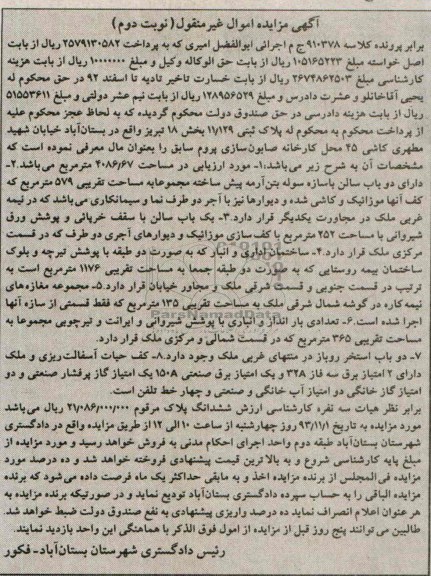 آگهی مزایده اموال غیرمنقول( نوبت دوم )
برابر پرونده کلاسه ۹۱۰۳۷۸ ج م اجرائی ابوالفضل امیری که به پرداخت ۲۵۷۹۱۳۰۵۸۲ ریال از بابت
اصل خواسته مبلغ ۱۰۵۱۶۵۲۲۳ ریال از بابت حق الوکاله وکیل و مبلغ ۱۰۰۰۰۰۰۰ ریال از بابت هزینه
کارشناسی مبلغ ۲۶۷۴۸۶۲۵۰۳ ریال از بابت خسارت تاخیر تادیه تا اسفند ۹۲ در حق محکوم له
یحیی آقاخانلو و عشرت دادرس و مبلغ ۱۲۸۹۵۶۵۲۹ ریال از بابت نیم عشر دولتی و مبلغ ۵۱۵۵۳۶۱۱
ریال از بابت هزینه دادرسی در حق صندوق دولت محکوم گردیده که به لحاظ عجز محکوم علیه
از پرداخت محکوم به محکوم له پلاک ثبتی ۱۱/۱۲۹ بخش ۱۸ تبریز واقع در بستان‌آباد خیابان شهید
مطهری کاشی ۴۵ محل کارخانه صابون‌سازی پروم سابق را بعنوان مال معرفی نموده است که
مشخصات آن به شرح زیر می‌باشد:۱- مورد ارزیابی در مساحت ۴۰۸۶/۶۷ مترمربع می‌باشد.۲-
دارای دو باب سالن باسازه سوله بتن‌آرمه پیش ساخته مجموعابه مساحت تقریبی ۵۷۹ مترمربع که
کف آنها موزائیک و کاشی شده و دیوارها نیز با آجر دو طرف نما و سیمانکاری می‌باشد که در نیمه
غربی ملک در مجاورت یکدیگر قرار دارد.۳- یک باب سالن با سقف خرپائی و پوشش ورق
شیروانی با مساحت ۲۵۲ مترمربع با کف‌سازی موزائیک و دیوارهای آجری دو طرف که در قسمت
مرکزی ملک قرار دارد.۴- ساختمان اداری و انبار که به صورت دو طبقه با پوشش تیرچه و بلوک
ساختمان بیمه روستایی که به صورت دو طبقه جمعا به مساحت تقریبی ۱۱۷۶ مترمربع است به
ترتیب در قسمت جنوبی و قسمت شرقی ملک و مجاور خیابان قرار دارد.۵- مجموعه مغازه‌های
نیمه کاره در گوشه شمال شرقی ملک به مساحت تقریبی ۱۳۵ مترمربع که فقط قسمتی از سازه آنها
اجرا شده است.۶- تعدادی بار انداز و انباری با پوشش شیروانی و ایرانت و تیرچوبی مجموعا به
مساحت تقریبی ۳۶۵ مترمربع که در قسمت شمالی و مرکزی ملک قرار دارد.
۷- دو باب استخر روباز در منتهای غربی ملک وجود دارد.۸- کف حیات آسفالت‌ریزی و ملک
دارای ۲ امتیاز برق سه فاز ۳۲A و یک امتیاز برق صنعتی ۱۵۰A یک امتیاز گاز پرفشار صنعتی و دو
امتیاز گاز خانگی دو امتیاز آب خانگی و صنعتی و چهار خط تلفن است.
برابر نظر هیات سه نفره کارشناسی ارزش ششدانگ پلاک مرقوم ۲۱/۰۸۶/۰۰۰/۰۰۰ ریال می‌باشد
مورد مزایده به تاریخ ۹۳/۱۱/۱ روز چهارشنبه از ساعت ۱۰ الی ۱۲ از طریق مزایده واقع در دادگستری
شهرستان بستان‌آباد طبقه دوم واحد اجرای احکام مدنی به فروش خواهد رسید و مورد مزایده از
مبلغ پایه کارشناسی شروع و به بالاترین قیمت پیشنهادی فروخته خواهد شد و ده درصد مورد
مزایده فی المجلس از برنده مزایده اخذ و به مابقی حداکثر یک ماه فرصت داده می‌شود که برنده
مزایده الباقی را به حساب سپرده دادگستری بستان‌آباد تودیع نماید و در صورتیکه برنده مزایده به
هر عنوان اعلام انصراف نماید ده درصد واریزی پیشنهادی به نفع صندوق دولت ضبط خواهد شد.
طالبین می توانند پنج روز قبل از مزایده از امول فوق الذکر با هماهنگی این واحد بازدید نمایند.
رئیس دادگستری شهرستان بستان‌آباد- فکور